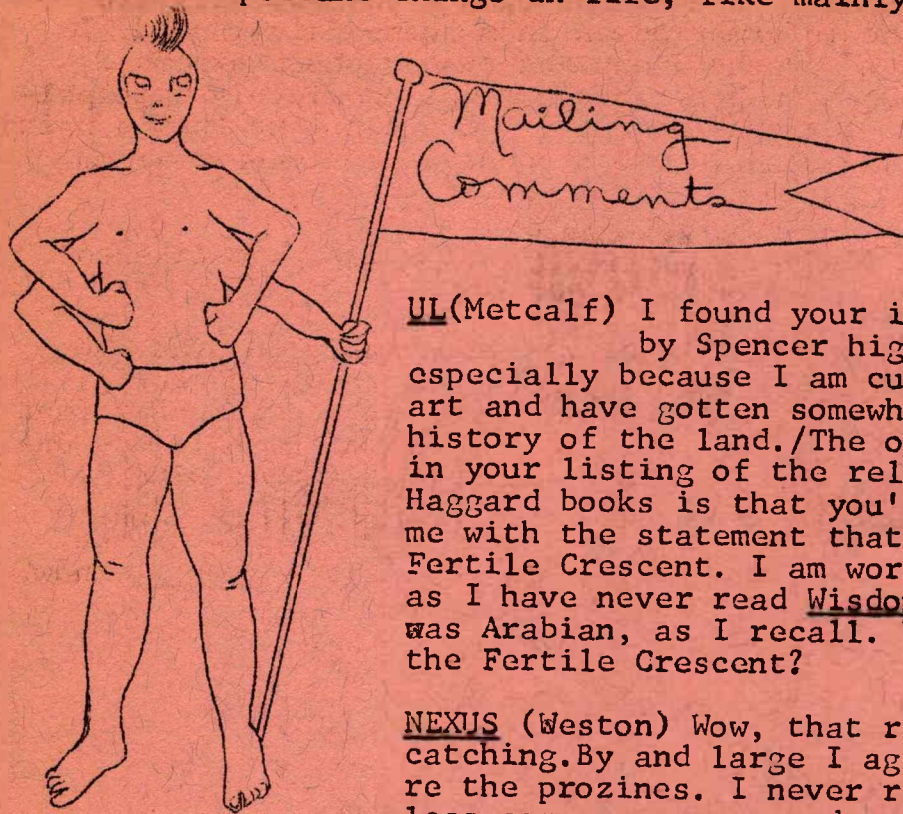 things in life, like mainly
Mailing
Comments
UL(Metcalf) I found your i
by Spencer hig
especially because I am cu
art and have gotten somewh
history of the land./The o
in your listing of the rel
Haggard books is that you'
me with the statement that
Fertile Crescent. I am wor
as I have never read Wisdo
was Arabian, as I recall.
the Fertile Crescent?
NEXUS (Weston) Wow, that r
catching.By and large I ag
re the prozines. I never r